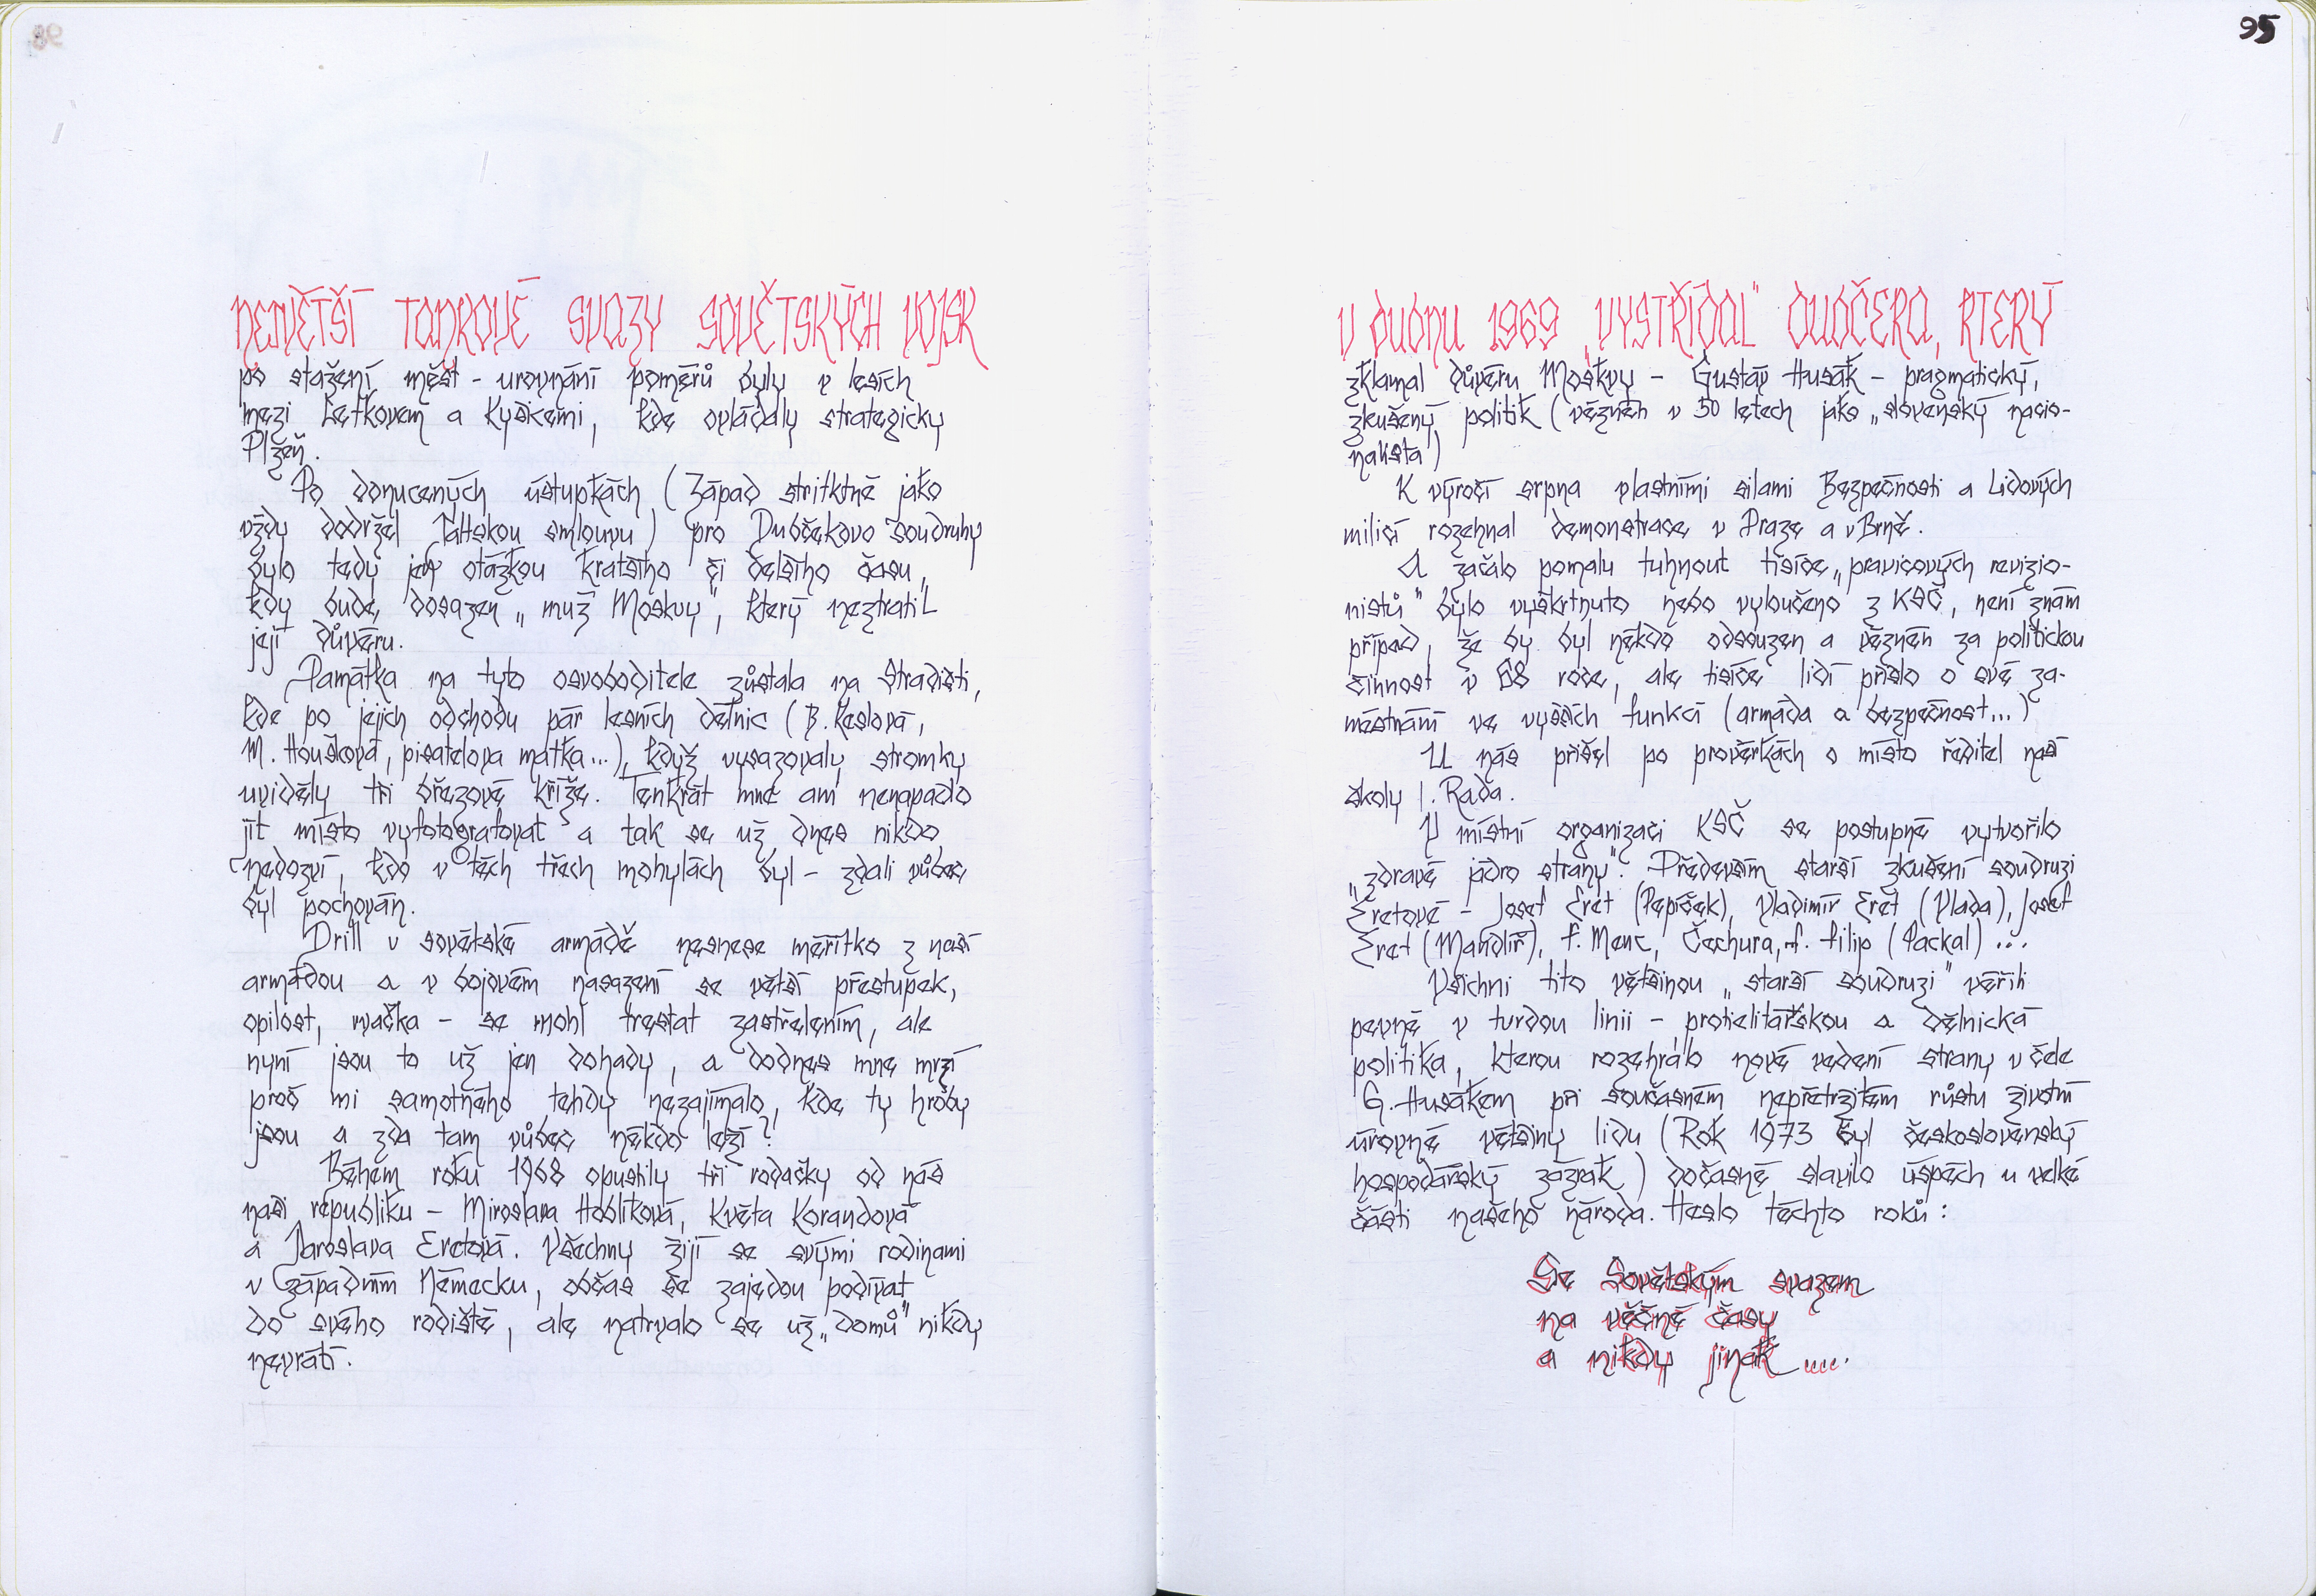 NEJVĚTŠÍ TANKOVÉ SVAZY SOVĚTSKÝCH VOJSK
po stažení měst - urovnání poměrů byly v lesích
mezi Letkovem a Kyšicemi, kde ovládaly strategicky
Plzeň.
Po donucených ústupkách (Západ striktně jako
vždy dodržel Jaltskou smlouvu) pro Dubčekovo soudruhy
bylo tedy jen otázkou kratšího či delšího času,
kdy bude dosazen „muž Moskvy", který neztratil
její důvěru.
Památka na tyto osvoboditele zůstala na Stradišti,
kde po jejich odchodu pár lesních dělnic (B. Keslová,
M. Houšková, pisatelova matka...), když vysazovaly stromky
uviděly tři březové kříže. Tenkrát mne ani nenapadlo
jít místo vyfotografovat a tak se už dnes nikdo
nedozví, kdo v těch třech mohylách byl - zdali vůbec
byl pochován.
Drill v sovětské armádě nesnese měřítko z naší
armádou a v bojovém nasazení se větší přestupek,
opilost, rvačka - se mohl trestat zastřelením, ale
nyní jsou to už jen dohady, a dodnes mne mrzí
proč mi samotného tehdy nezajímalo, kde ty hroby
jsou a zda tam vůbec někdo leží?
Během roku 1968 opustily tři rodačky od nás
naši republiku - Miroslava Hoblíková, Květa Korandová
a Jaroslava Eretová. Všechny žijí se svými rodinami
v Západním Německu, občas se zajedou podívat
do svého rodiště, ale natrvalo se už „domů" nikdy
nevrátí.
95
V DUBNU 1969 „VYSTŘÍDAL" DUBČEKA, KTERÝ
zklamal důvěru Moskvy - Gustáv Husák - pragmatický,
zkušený politik (vězněn v 50 letech jako „slovenský nacio-
nalista")
K výročí srpna vlastními silami Bezpečnosti a Lidových
milicí rozehnal demonstrace v Praze a v Brně.
A začalo pomalu tuhnout tisíce „pravicových revizio-
nistů" bylo vyškrtnuto nebo vyloučeno z KSČ, není znám
případ, že by byl někdo odsouzen a vězněn za politickou
činnost v 68 roce, ale tisíce lidí přišlo o své za-
městnání ve vyšších funkcí (armáda a bezpečnost...)
U nás přišel po prověrkách o místo ředitel naší
školy J. Rada.
V místní organizaci KSČ se postupně vytvořilo
„zdravé jádro strany". Především starší zkušení soudruzi
Eretové - Josef Eret (Pepíček), Vladimír Eret (Vlada), Josef
Eret (Mandlíř), F. Menc, Čechura, F. Filip (Packal)...
Všichni tito většinou „starší soudruzi" věřili
pevně v tvrdou linii - protielitářskou a dělnická
politika, kterou rozehrálo nové vedení strany v čele
G. Husákem při současném nepřetržitém růstu životní
úrovně většiny lidu (Rok 1973 byl československý
hospodářský zázrak) dočasně slavilo úspěch u velké
části našeho národa. Heslo těchto roků:
Se Sovětským svazem
na věčné časy
a nikdy jinak .....